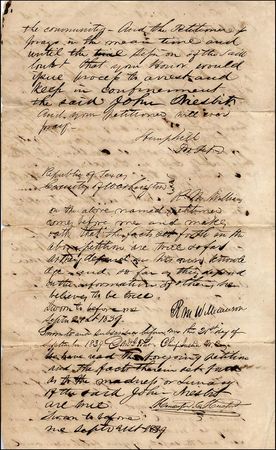 the community - And the Petitioner
prays in the mean time and
until the time of the said
that your Honor would
issue process to arrest and
keep in confinement
the said John Nesbit
And your petitioner will ever
pray
Hemphill
for Pet
Republic of Texas
County of Washington
R. M. Williams
on the above named petitioner
came before me and makes
oath that the facts set forth in the
above petition are true so far
as they depend on his own knowle
dge and so far as they depend
on the information of others, he
believes to be true
Sworn to before me
Sept 21st 1839
R M Williamson
Sworn to and subscribed before me the 21 day of
September 1839
We have read the foregoing petition
and the facts therein set forth
as to the madness or lunacy
of the said John Nesbit
are true
Sworn to before
me Sept 21st 1839